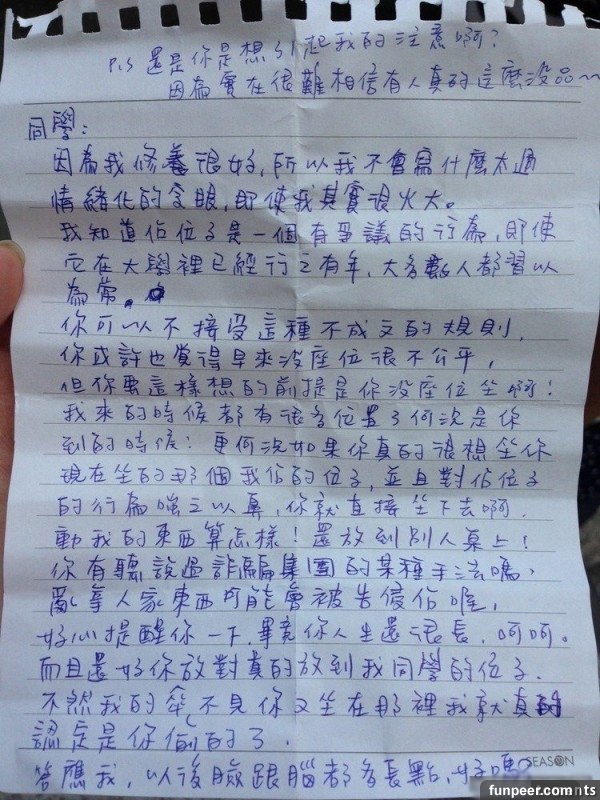 P.S 還是你是想引起我的注意啊?
因為實在很難相信有人真的這麼沒品~
同學:
因為我修養很好,所以我不會寫什麼太過
情緒化的字眼,即使我其實很火大。
我知道佔位子是一個有爭議的行為,即使
它在大學裡已經行之有年,大多數人都習以
為常。
你可以不接受這種不成文的規則,
你或許也覺得早來沒座位很不公平,
但你要這樣想的前提是你沒座位坐啊!
我來的時候都有很多位置了何況是你
到的時候!更何況如果你真的很想坐你
現在坐的那個我佔的位子,並且對佔位子
的行為嗤之以鼻,你就直接坐下去啊,
動我的東西算怎樣!還放到別人桌上!
你有聽說過詐騙集團的某種手法嗎,
亂拿人家東西可能會被告侵佔喔,
好心提醒你一下,畢竟你人生還很長,呵呵。
而且還好你放對真的放到我同學的位子,
不然我的傘不見你又坐在那裡我就真的
認定是你偷的了,
答應我,以後臉跟腦都多長點,好嗎?
SEASON
funpeer.com